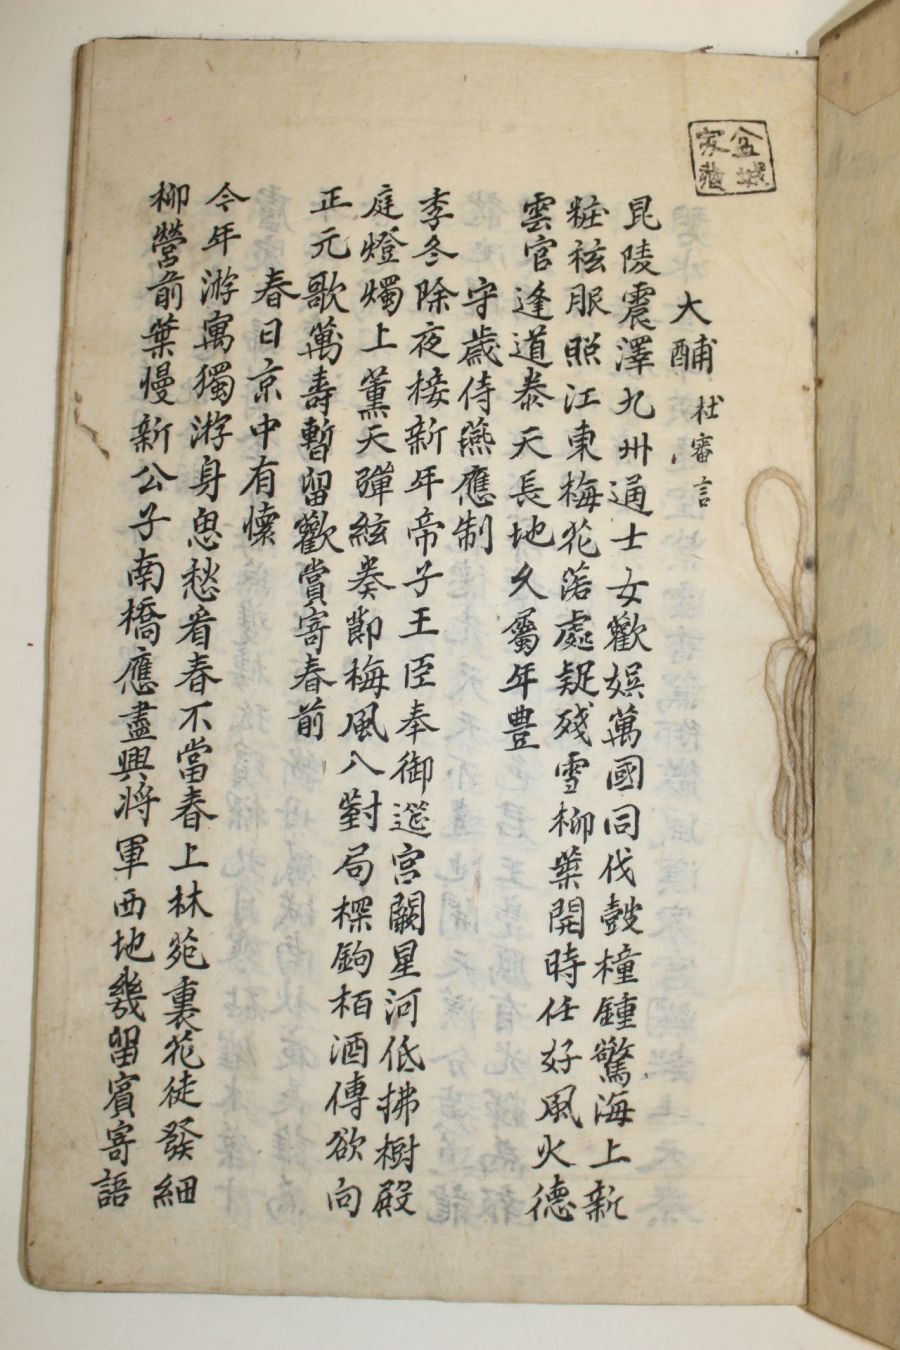 盆城家藏
大酺 杜審言
昆陵震澤九州通士女歡娛萬國同伐鼓橦鍾驚海上新
粧袨服照江東梅花落處疑殘雪柳葉開時任好風火德
雲官逢道泰天長地久屬年豊
守歲侍燕應制
季冬除夜接新年帝子王臣奉御筵宮闕星河低拂樹殿
庭燈燭上薰天彈絃奏節梅風入對局探鉤栢酒傳欲向
正元歌萬壽暫留歡賞寄春前
春日京中有懷
今年游寓獨游身愁思看春不當春上林苑裏花徒發細
柳營前葉慢新公子南橋應盡興将軍西地幾留賓寄語